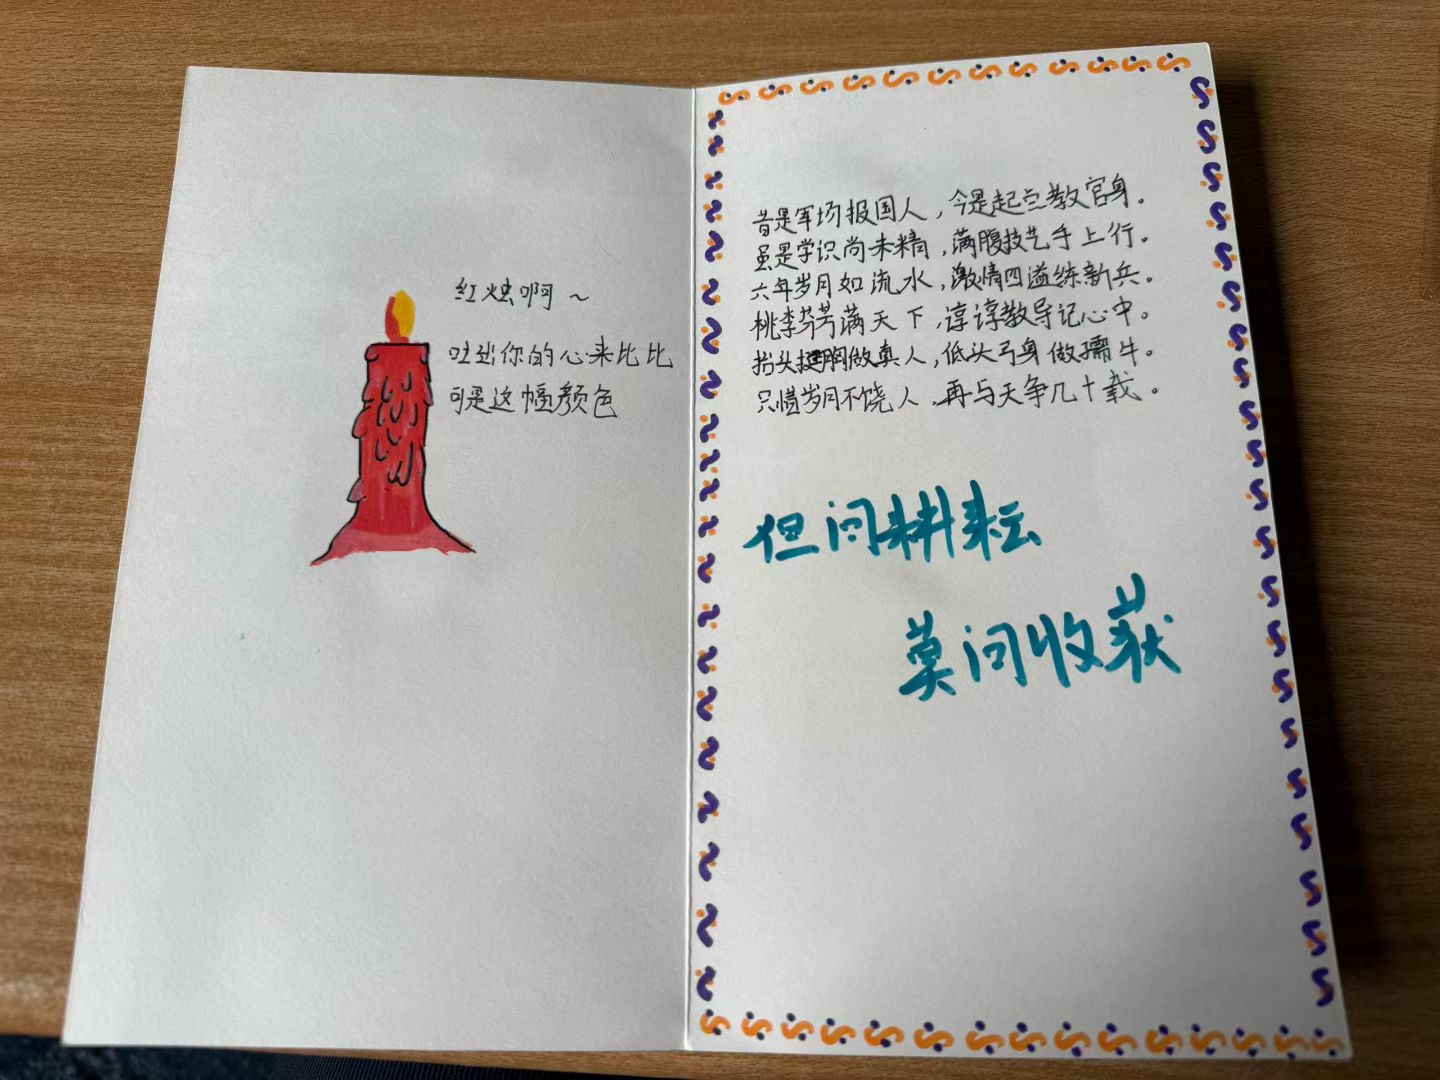 红烛啊~
吐出你的心来比比
可是这幅颜色
昔是军场报国人，今是起点教官身。
虽是学识尚未精，满腹技艺手上行。
六年岁月如流水，激情四溢练新兵。
桃李芬芳满天下，谆谆教导记心中。
抬头挺胸做真人，低头弓身做孺牛。
只惜岁月不饶人，再与天争几十载。
但问耕耘
莫问收获